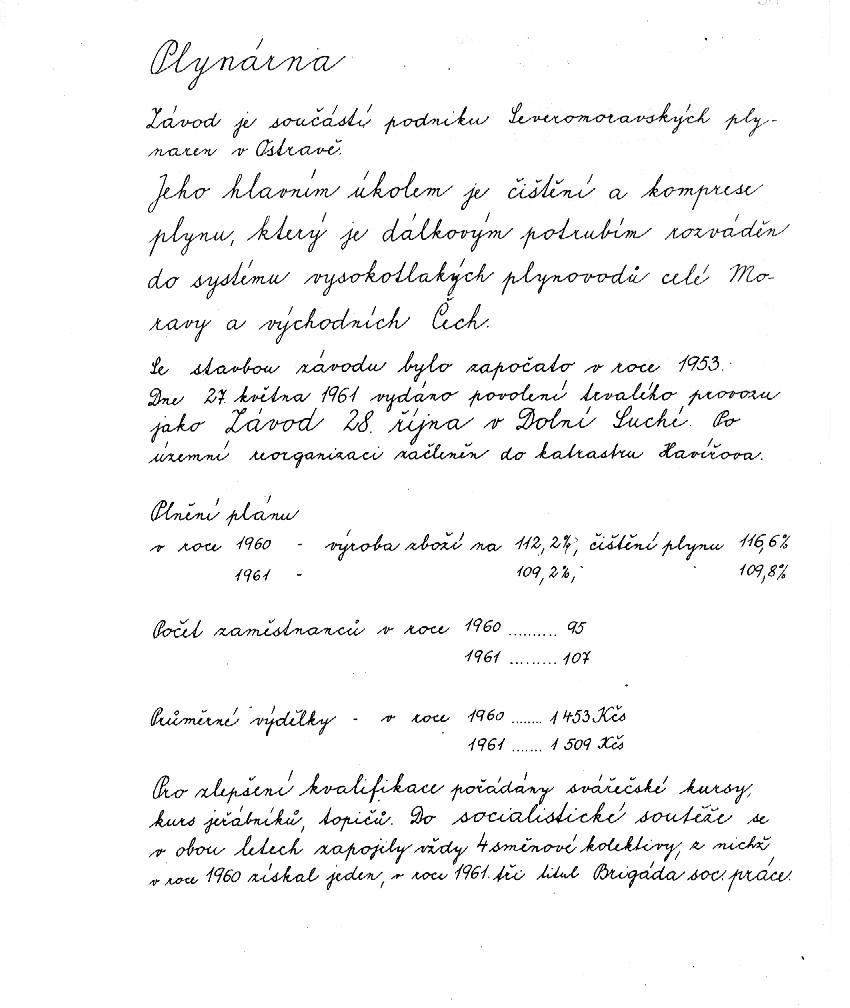 Plynárna
Závod je součástí podniku Severomoravských ply-
naren v Ostravě.
Jeho hlavním úkolem je čištění a komprese
plynu, který je dálkovým potrubím rozváděn
do systému vysokotlakých plynovodů celé Mo-
ravy a východních Čech.
Se stavbou závodu bylo započato v roce 1953.
Dne 27 května 1961 vydáno povolení trvalého provozu
jako Závod 28. října v Dolní Suché. Po
územní reorganizaci začleněn do katrastru Havířova.
Plnění plánu
v roce 1960 - výroba zboží na 112,2%, čištění plynu 116,6%
1961 - 109,2%, 109,8%
Počet zaměstnanců v roce 1960 .......... 95
1961 ......... 107
Průměrné výdělky - v roce 1960 ....... 1 453 Kčs
1961 ....... 1 509 Kčs
Pro zlepšení kvalifikace pořádány svářečské kursy,
kurs jeřábníků, topičů. Do socialistické soutěže se
v obou letech zapojily vždy 4 směnové kolektivy, z nichž
v roce 1960 získal jeden, v roce 1961. tři titul Brigáda soc. práce.